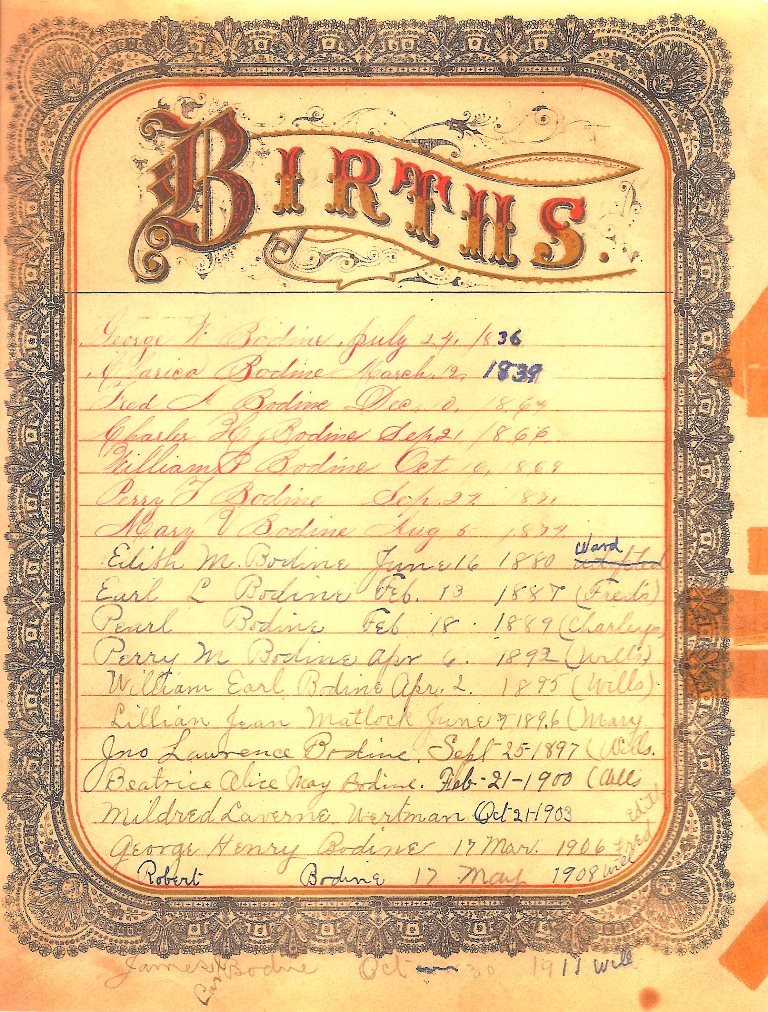 BIRTHS.
George W. Bodine. July 24, 1836
Clarica Bodine March. 12. 1839
Fred A Bodine Dec, 10, 1864
Charles H, Bodine Sep 21 1866
William P Bodine Oct 10, 1868
Perry F Bodine Sep. 27. 1871
Mary V Bodine Aug 5 1874
Edith M. Bodine June 16 1880 Ward
Earl L Bodine Feb. 13 1887 (Fred's)
Pearl Bodine Feb 18. 1889 (Charleys
Perry M Bodine Apr 6. 1892 (Wills)
William Earl Bodine Apr. 2. 1895 (Wills)
Lillian Jean Matlock June 1896 (Mary
Jno Lawrence Bodine. Sept 25-1897 (Wills.
Beatrice Alice May Bodine. Feb-21-1900 (Wills
Mildred Laverne Wertman Oct 21-1903 Edith
George Henry Bodine 17 Mar. 1906 Fred
Robert Bodine 17 May 1908 Will
James Bodine Oct 30 1911 Will
Carl